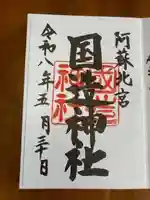 阿蘇北宮
国造神社
令和八年五月二十日